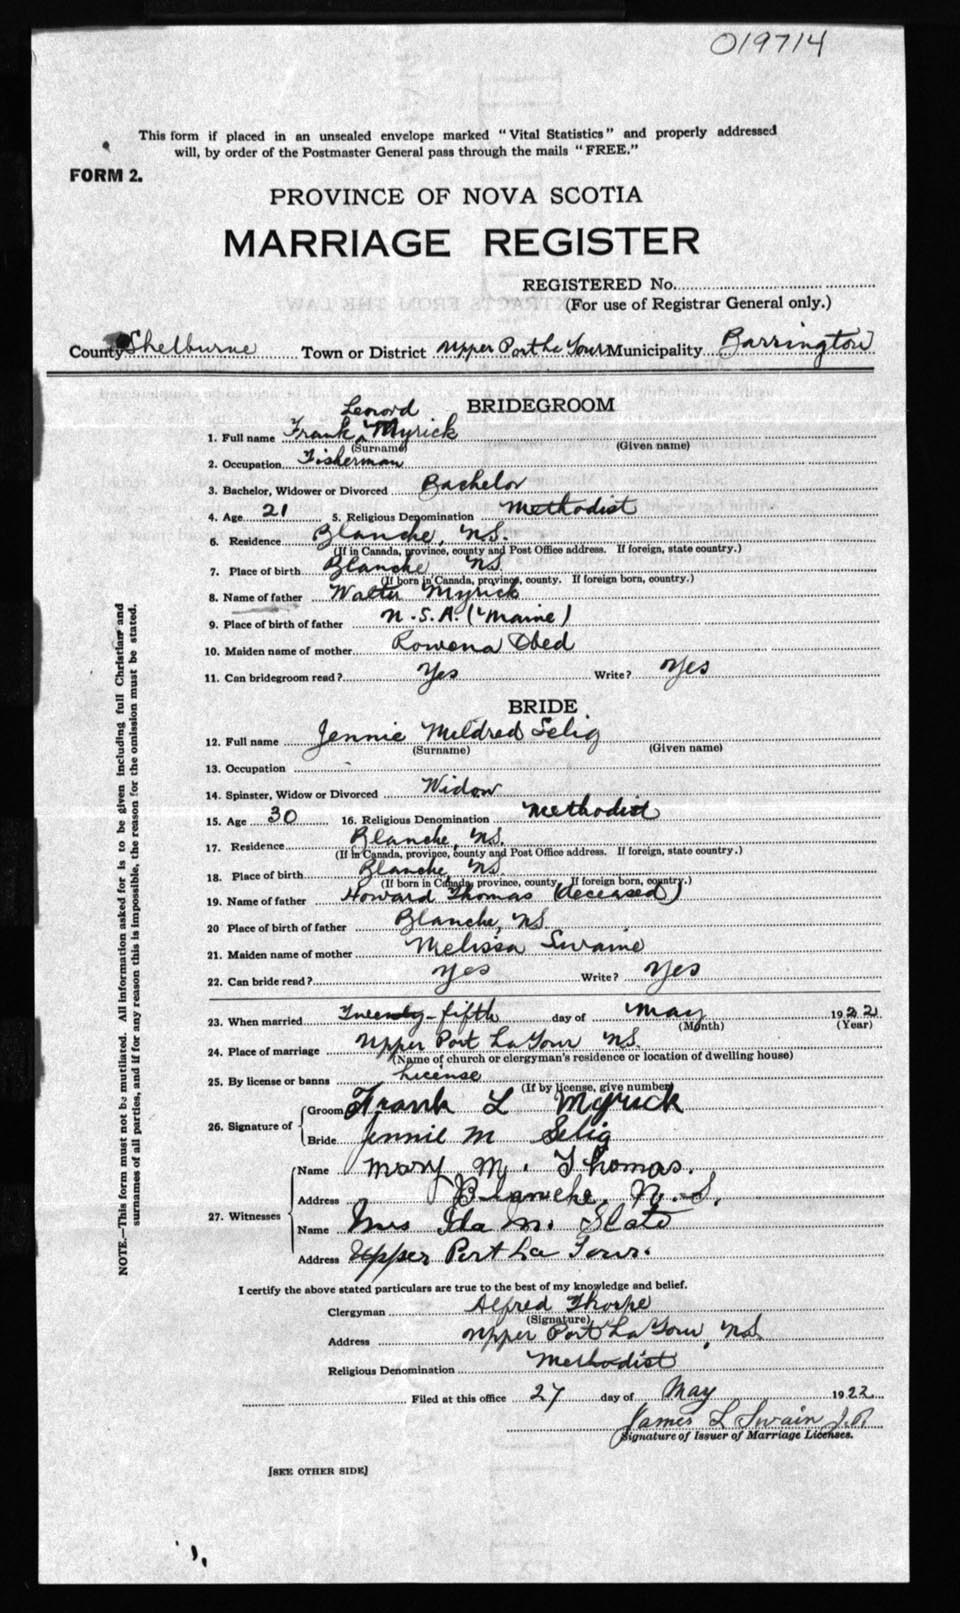 019714
This form if placed in an unsealed envelope marked "Vital Statistics" and properly addressed
will, by order of the Postmaster General pass through the mails "FREE."
FORM 2.
PROVINCE OF NOVA SCOTIA
MARRIAGE REGISTER
REGISTERED No.
(For use of Registrar General only.)
County Shelburne Town or District Upper Port La Tour Municipality Barrington
BRIDEGROOM
Leonord
1. Full name Frank ^ Myrick
(Surname) (Given name)
2. Occupation Fisherman
3. Bachelor, Widower or Divorced Bachelor
4. Age 21 5. Religious Denomination Methodist
6. Residence Blanche, N.S.
(If in Canada, province, county and Post Office address. If foreign, state country.)
7. Place of birth Blanche N.S.
(If born in Canada, province, county. If foreign born, country.)
8. Name of father Walter Myrick
9. Place of birth of father U.S.A. (Maine)
10. Maiden name of mother Rowena Obed
11. Can bridegroom read? Yes Write? Yes
BRIDE
12. Full name Jennie Mildred Selig
(Surname) (Given name)
13. Occupation
14. Spinster, Widow or Divorced Widow
15. Age 30 16. Religious Denomination Methodist
17. Residence Blanche, N.S.
(If in Canada, province, county and Post Office address. If foreign, state country.)
18. Place of birth Blanche, N.S.
(If born in Canada, province, county. If foreign born, country.)
19. Name of father Howard Thomas (deceased)
20 Place of birth of father Blanche, N.S.
21. Maiden name of mother Melissa Swaine
22. Can bride read? Yes Write? Yes
23. When married Twenty-fifth day of May 1922
(Month) (Year)
24. Place of marriage Upper Port La Tour N.S.
(Name of church or clergyman's residence or location of dwelling house)
25. By license or banns License
(If by license, give number)
26. Signature of Groom Frank L Myrick
Bride Jennie M Selig
27. Witnesses Name Mary M. Thomas.
Address Blanche, N.S.
Name Mrs Ida M. Slate
Address Upper Port La Tour.
I certify the above stated particulars are true to the best of my knowledge and belief.
Clergyman Alfred Thorpe
(Signature)
Address Upper Port La Tour, N.S.
Religious Denomination Methodist
Filed at this office 27 day of May 1922
James L Swain J.P.
Signature of Issuer of Marriage Licenses.
[SEE OTHER SIDE]
NOTE.—This form must not be mutilated. All information asked for is to be given including full Christian and
surnames of all parties, and if for any reason this is impossible, the reason for the omission must be stated.